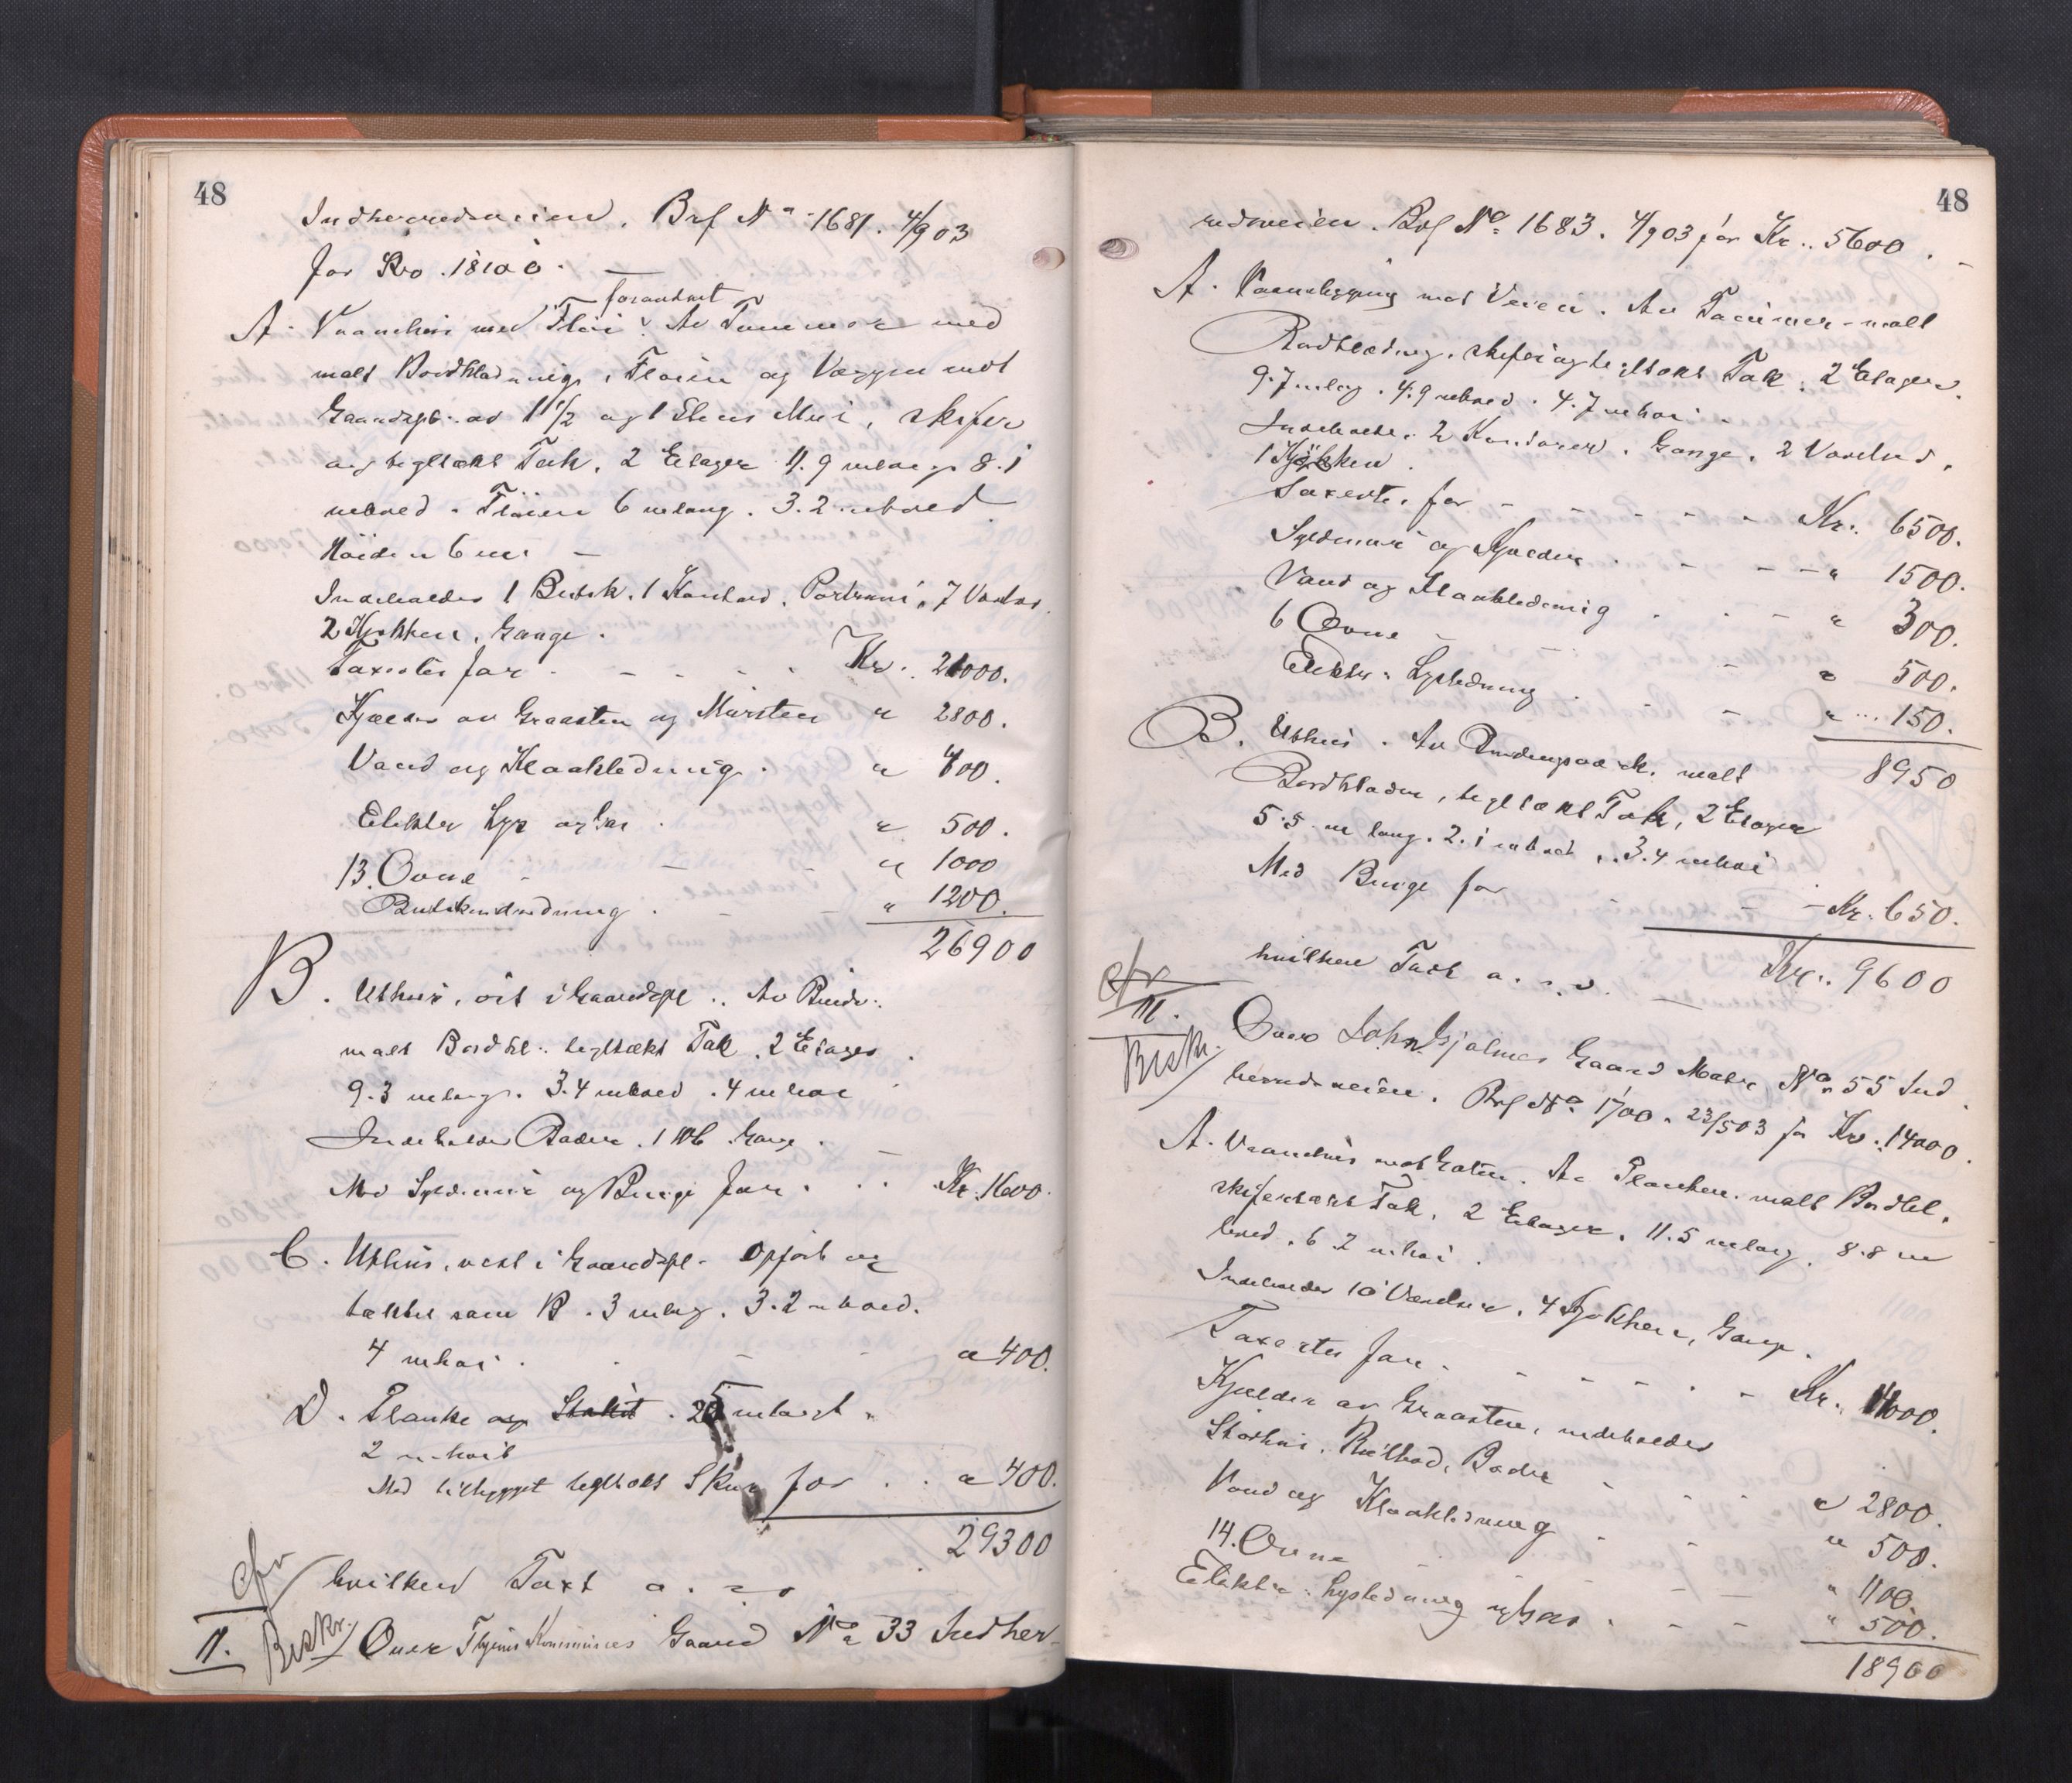 48
Indherredsveien. Brf No 1681. 4/9 03
for Kro. 18100.
forandret
A. Vaanehus med Fløi. Av Tømmer med
malt Bordklædning, Fløien og Væggen mot
Gaardspl. av 1 1/2 og 1 Stens Mur, skifer
og tegltækt Tak, 2 Etager 11.9 m lang 8.1
m bred. Fløien 6 m lang. 3.2 m bred
Høiden 6 m.
Indeholder 1 Butik. 1 Kontor. Portrum, 7 Værelser
2 Kjøkken, Gange.
Taxertes for Kr. 21000.
Kjælder av Graasten og Mursten " 2800.
Vand og Kloakledning " 400.
Elektr Lys og Gas " 500.
13. Ovne " 1000
Butikindredning " 1200.
26900
B. Uthus, øst i Gaardspl. Av Bindv.
malt Bordkl. tegltækt Tak, 2 Etager
9.3 m lang. 3.4 m bred. 4 m høi
Indeholder Boder. 1 Wc. Gange.
Med Syldmur og Binge for Kr. 1600.
C. Uthus, vest i Gaardspl. Opført og
tækket som B. 3 m lang. 3.2 m bred.
4 m høi " 400.
D. Planke og Stakit. 25 m langt.
2 m høit
Med tilbygget tegltækt Skur for " 400.
29300
hvilken Taxt
cfr
II.
Beskr.
Over Kommunes Gaard No 33 Indher-
48
redsveien. Brf No 1683. 4/9 03 for Kr. 5600.
A. Vaanebygning mot Veien. Av Tømmer - malt
Bordklædning, skifer og tegltækt Tak. 2 Etager
9.7 m lang. 4.9 m bred. 4.7 m høi.
Indeholder 2 Kontorer, Gange, 2 Værelser,
1 Kjøkken.
Taxertes for Kr. 6500.
Syldmur og Kjælder " 1500.
Vand og Kloakledning " 300.
6 Ovne " 500.
Elektr. Lysledning " 150.
8950
B. Uthus. Av Bindingsværk. malt
Bordklædn, tegltækt Tak, 2 Etager
5.5 m lang. 2.1 m bred. 3.4 m høi
Med Binge for Kr. 650.
hvilken Taxt Kr. 9600
cfr
III.
Beskr.
Over John Gjølmes Gaard Matr No 55 Ind
herredsveien. Brf No 1700. 23/5 03 for Kr. 14000.
A. Vaanehus mot Gaten. Av Planker. malt Bordkl.
skifertækt Tak. 2 Etager. 11.5 m lang. 8.8 m
bred. 6.2 m høi.
Indeholder 10 Værelser, 4 Kjøkken, Gange.
Taxertes for Kr. 14000.
Kjælder av Graasten, indeholder
Bryggerhus, Rulbod, Boder " 2800.
Vand og Kloakledning " 500.
14. Ovne " 1100.
Elektr. Lysledning og Gas " 500.
18900